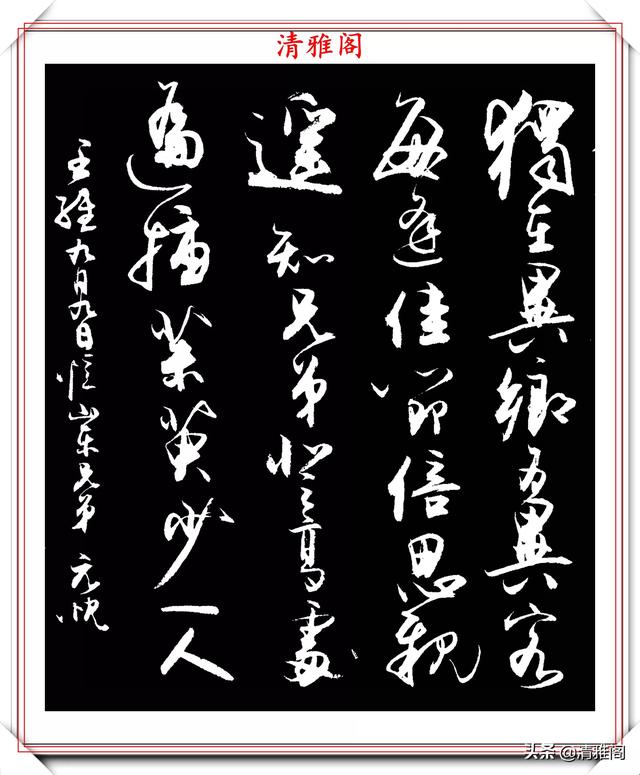 清雅阁
獨在異鄉為異客
每逢佳節倍思親
遥知兄弟登高處
遍插茱萸少一人
王維九月九日憶山東兄弟 元
头条 @清雅阁